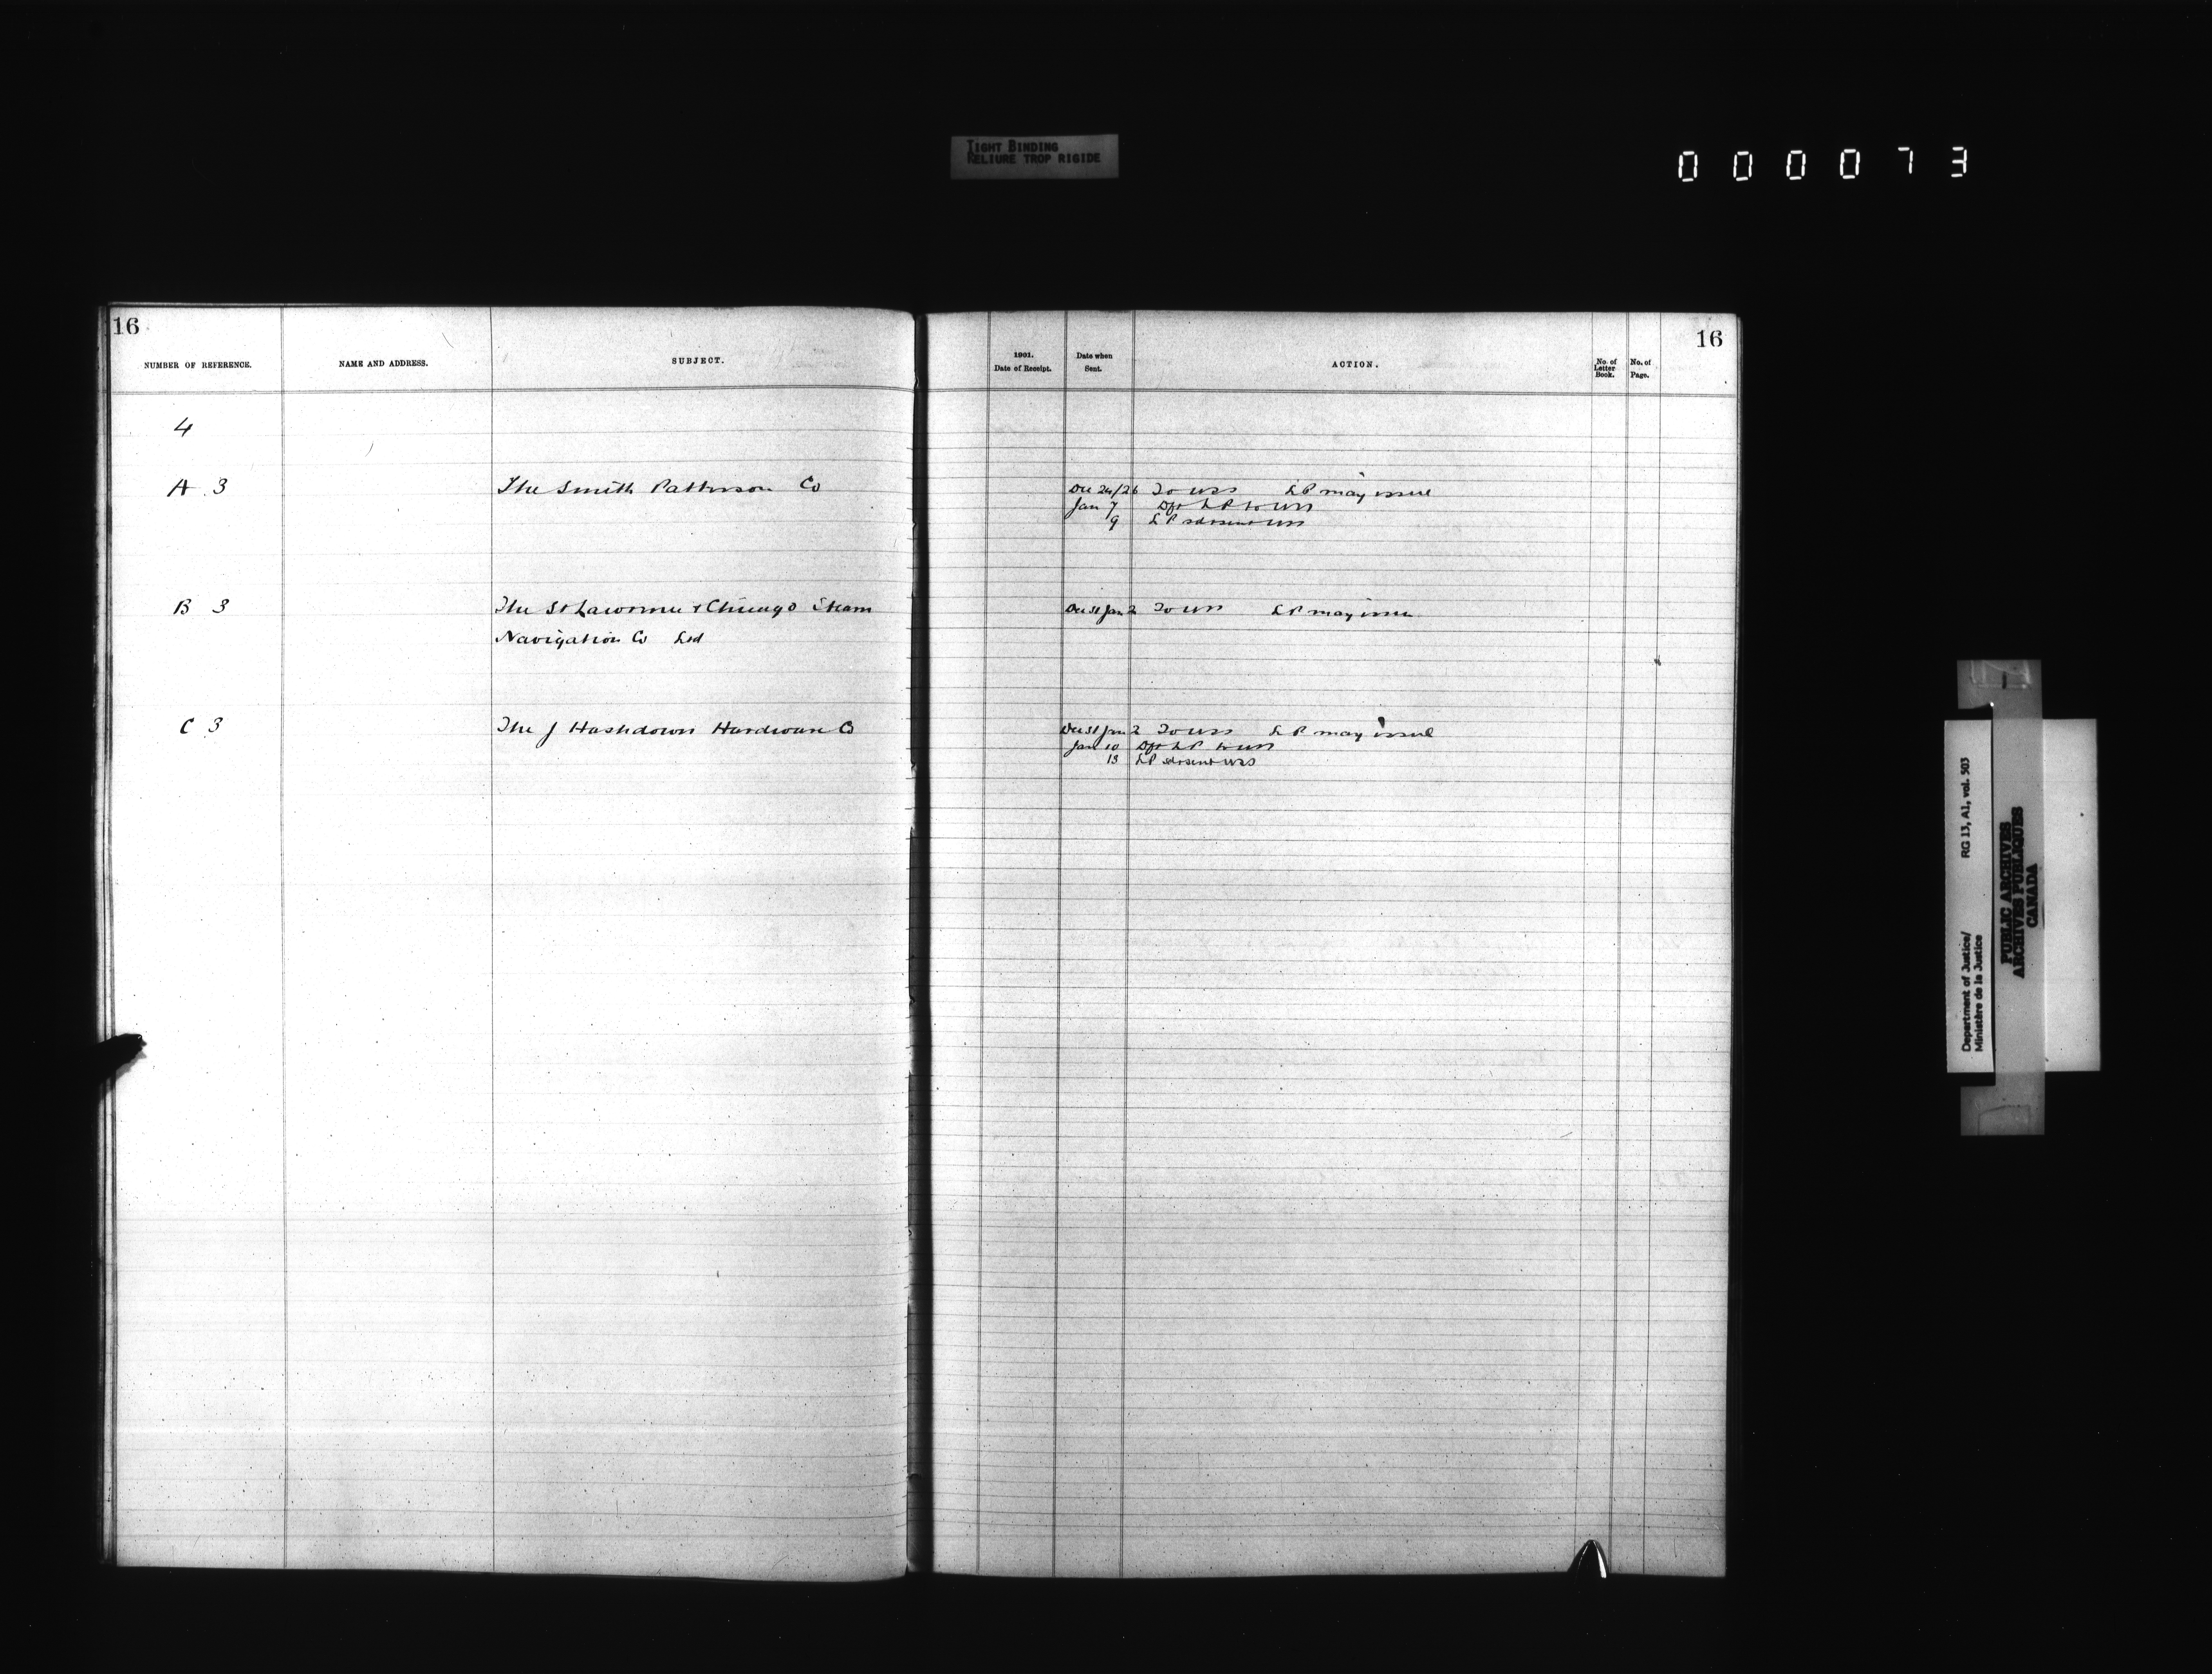 TIGHT BINDING
RELIURE TROP RIGIDE
000073
16
NUMBER OF REFERENCE.
NAME AND ADDRESS.
SUBJECT.
1901.
Date of Receipt.
Date when
Sent.
ACTION.
No. of
Letter
Book.
No. of
Page.
16
4
A 3 The Smith Patterson Co Dec 24/26 To USS LP may issue
Jan 7 Dft LP to USS
9 LP sd & sent USS
B 3 The St Lawrence & Chicago Steam Dec 31 Jan 2 To USS LP may issue
Navigation Co Ltd
C 3 The J Hashdown Hardware Co Dec 31 Jan 2 To USS LP may issue
Jan 10 Dft LP to USS
13 LP sd & sent USS
Department of Justice/ RG 13, A1, vol. 503
Ministère de la Justice
PUBLIC ARCHIVES
ARCHIVES PUBLIQUES
CANADA